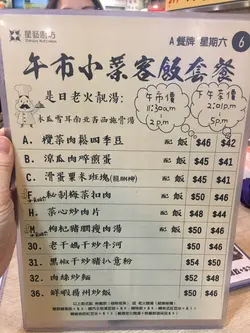 星藝廚坊
A 餐牌 星期六 6
午市小菜客飯套餐
是日老火靚湯:
木瓜雪耳南北杏西施骨湯
午市價
11:30am
2pm
下午茶價
2:01pm
5pm
A. 欖菜肉鬆四季豆 配 飯 $46 $42
B. 涼瓜肉碎煎蛋 配 飯 $45 $41
C. 滑蛋粟米斑塊(龍脷柳) 配 飯 $45 $41
F. 秘制梅菜扣肉 飯 $50 $46
H. 菜心炒肉片 飯 $48 $44
M. 枸杞豬膶瘦肉湯 配 飯 $50 $46
30. 老干媽干炒牛河 $50 $46
31. 黑椒干炒豬扒意粉 $54 $50
32. 肉絲炒麵 $52 $48
36. 鮮蝦揚州炒飯 $50 $46